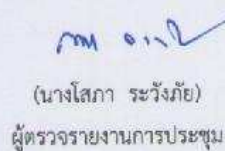 (นางโสภา ระวังภัย)
ผู้ตรวจรายงานการประชุม